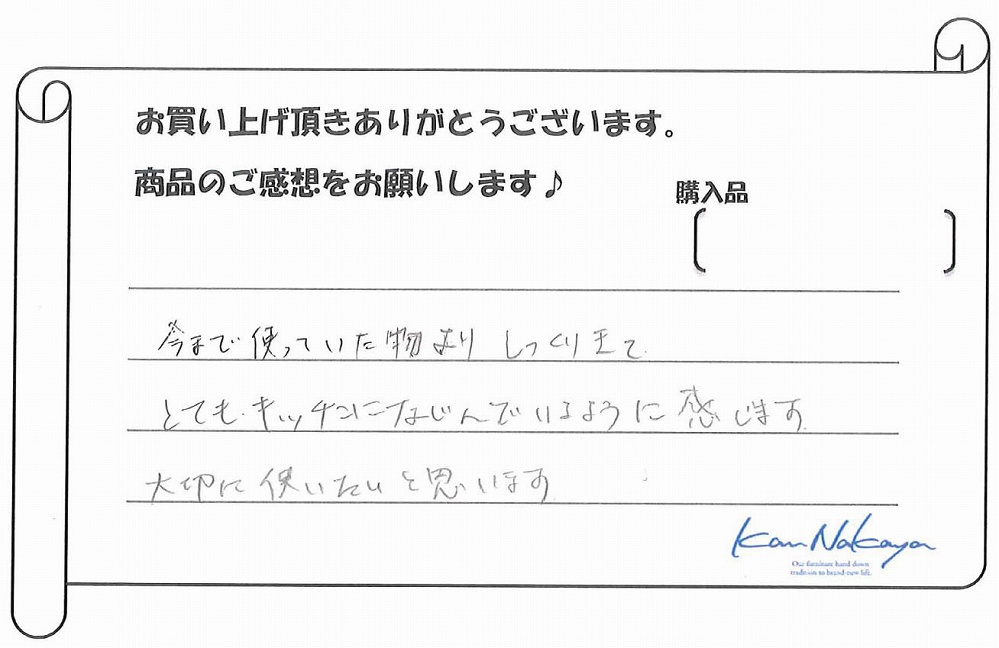 お買い上げ頂きありがとうございます。
商品のご感想をお願いします♪
購入品
今まで使っていた物よりしっくりきて
とてもキッチンになじんでいるように感じます
大切に使いたいと思います
Kan Nakaya
Our furniture hand down
tradition to brand-new life.